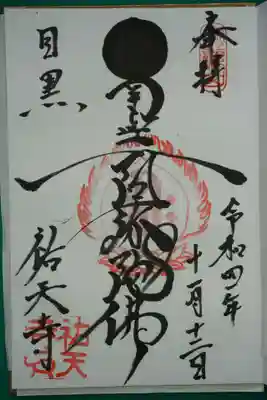 奉拝
令和四年
十一月十二日
南無阿弥陀佛
目黒
祐天寺
祐天